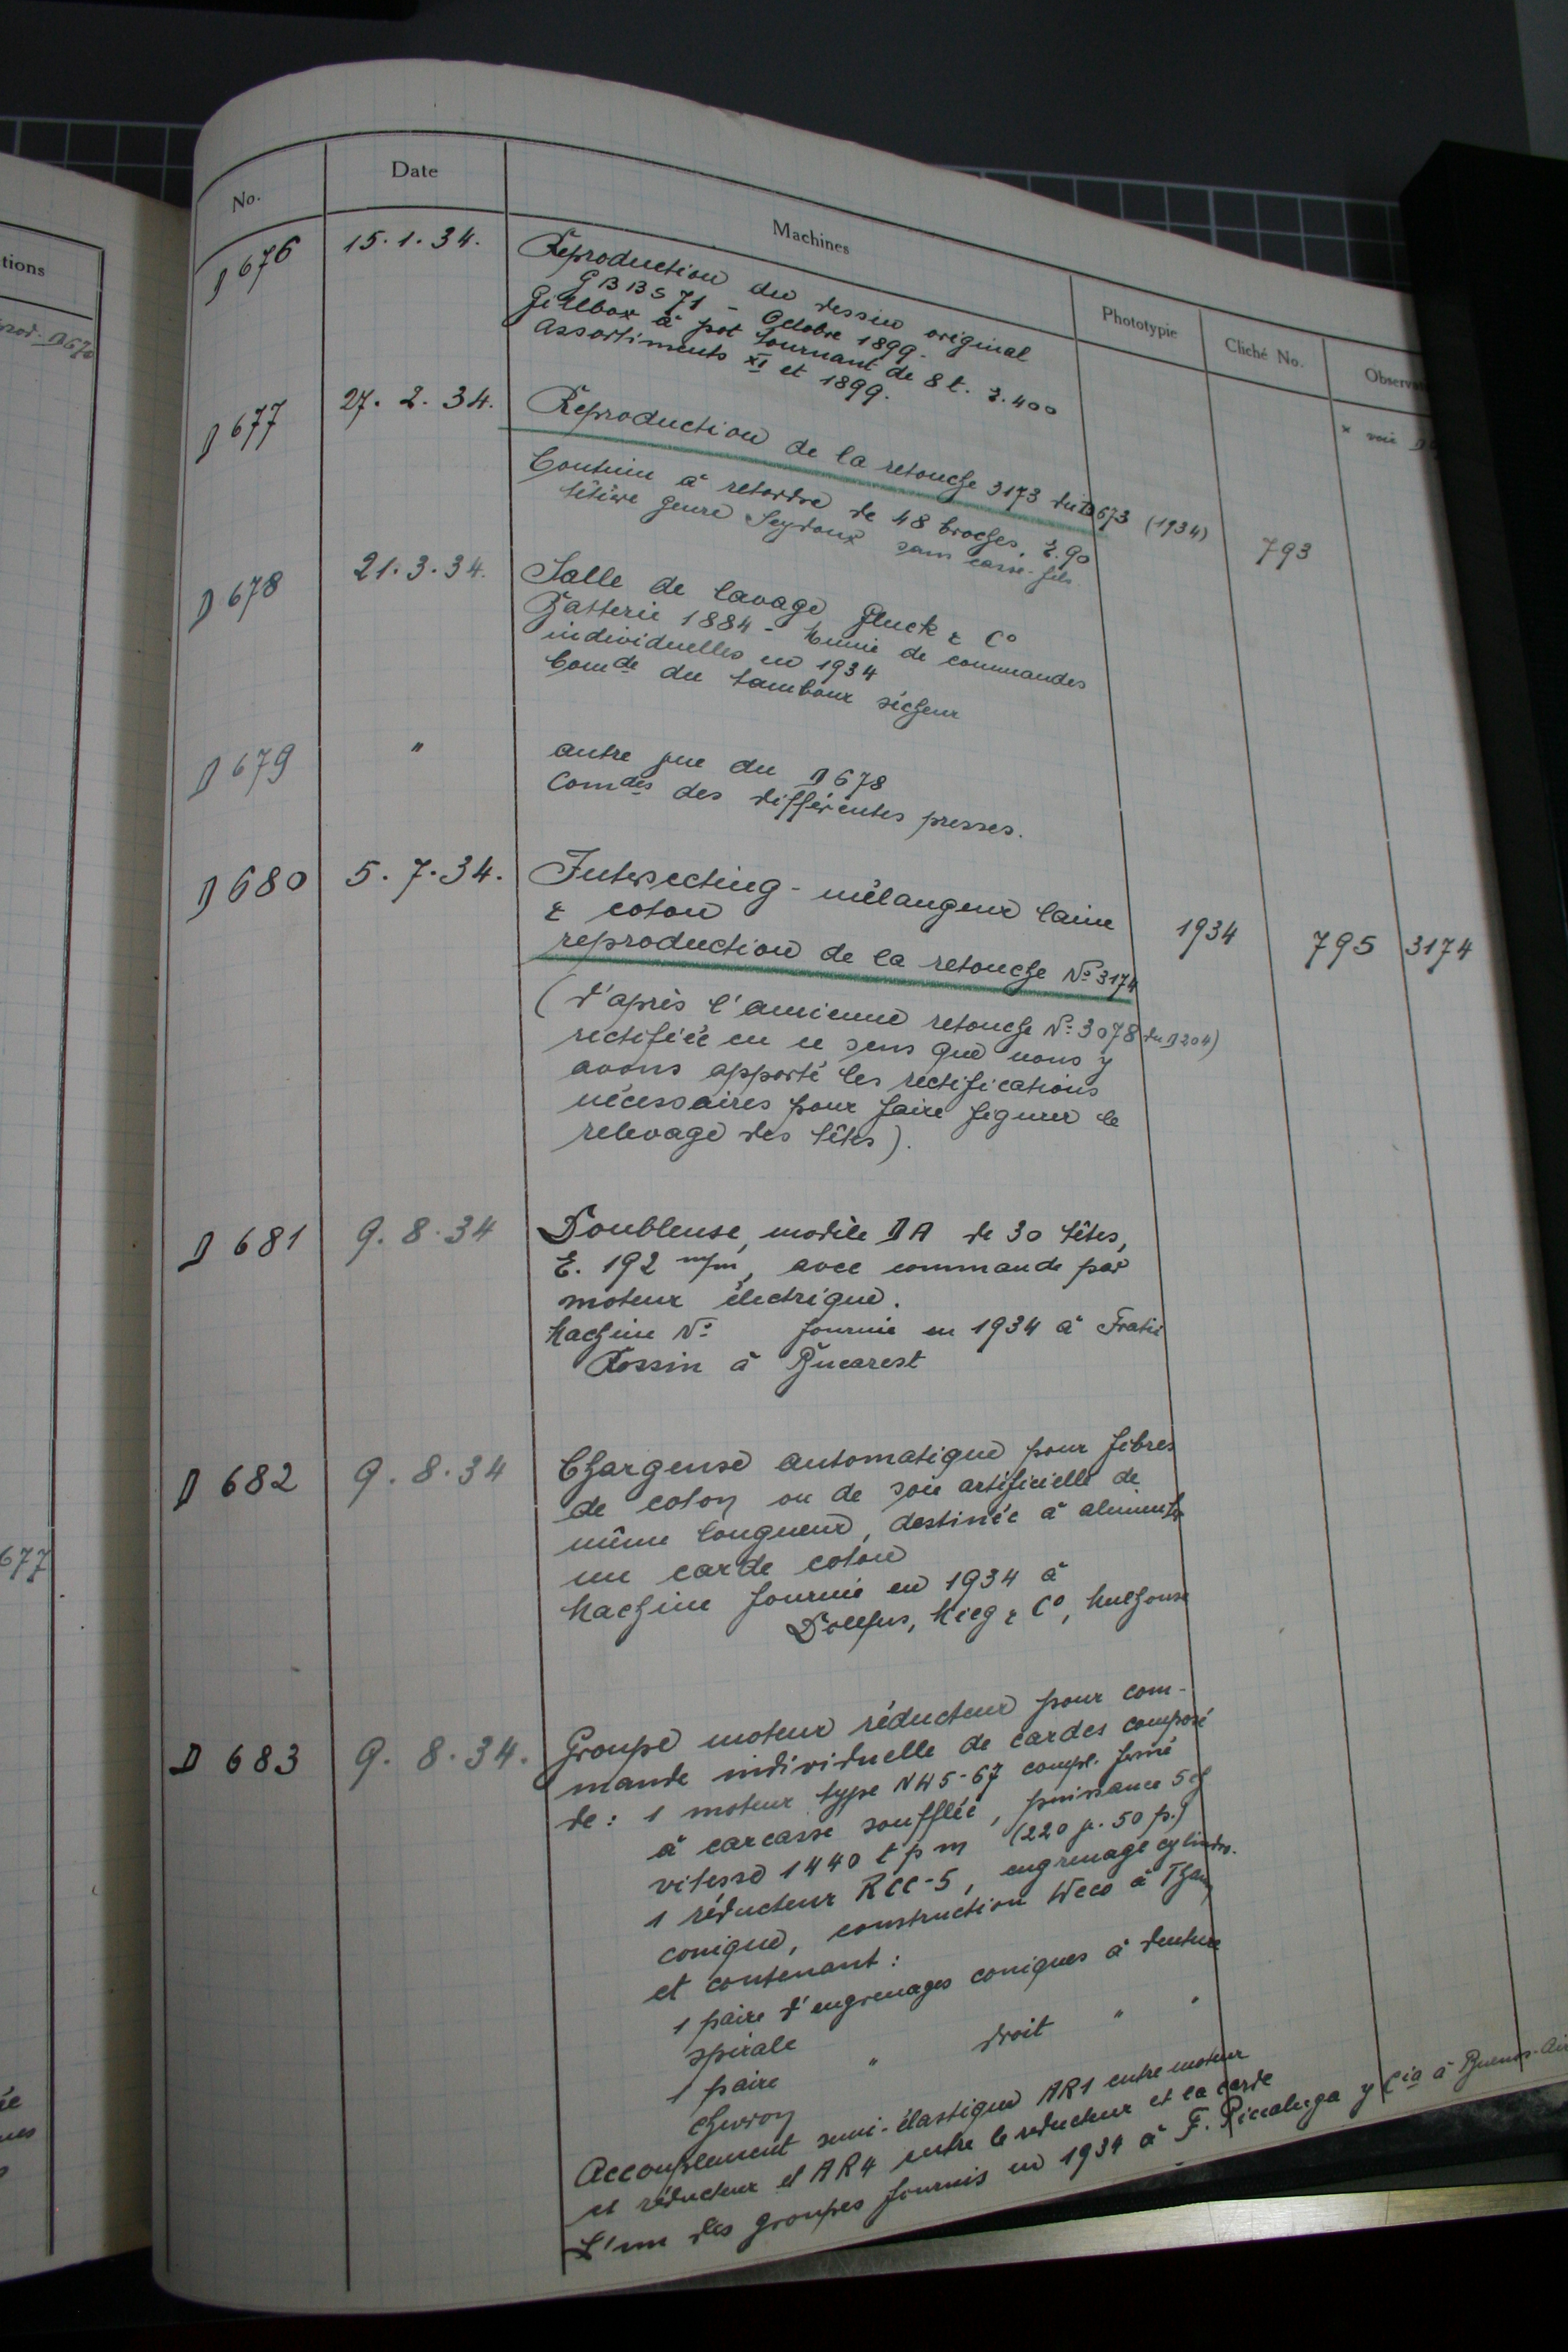 tions
No.
Date
Machines
Phototypie
Cliché No.
D 676
15.1.34.
Reproduction du dessin original
GBBS 71 - Octobre 1899.
Gillbox à pot tournant de 8 t. E.400
Assortiments XI et 1899.
* voir
D 677
27. 2. 34.
Reproduction de la retouche 3173 du D673 (1934)
793
Continu à retordre de 48 broches, E.90
têtière genre Seydoux sans casse-fils.
D 678
21.3.34.
Salle de lavage Gluck & Co
Batterie 1884 - Munie de commandes
individuelles en 1934
Comde du tambour sécheur
D 679
"
autre vue du D 678
Comdes des différentes presses.
D 680
5. 7. 34.
Intersecting - mélangeur laine
& coton
1934
795
3174
reproduction de la retouche No 3174
(d'après l'ancienne retouche No 3078 du D204)
rectifiée en ce sens que nous y
avons apporté les rectifications
nécessaires pour faire figurer le
relevage des têtes).
D 681
9. 8. 34
Doubleuse, modèle DA de 30 têtes,
E. 192 m/m, avec commande par
moteur électrique.
Machine No fournie en 1934 à Fratii
Rossin à Bucarest
D 682
9. 8. 34
Chargeuse automatique pour fibres
de coton ou de soie artificielle de
même longueur, destinée à alimenter
une carde coton
Machine fournie en 1934 à
Dollfus, Mieg & Co, Mulhouse
677
D 683
9. 8. 34.
Groupe moteur réducteur pour com-
mande individuelle de cardes composé
de : 1 moteur type NH5-67 compl. fermé
à carcasse soufflée, puissance 5 ch
vitesse 1440 t p m (220 v. 50 p.)
1 réducteur RCC-5, engrenage cylindro.
conique, construction Weco à Thann
et contenant :
1 paire d'engrenages coniques à denture
spirale
1 paire " droit " "
chevron
Accouplement semi-élastique AR1 entre moteur
et réducteur et AR4 entre le réducteur et la carde
L'un des groupes fournis en 1934 à F. Piccaluga y Cia à Buenos-Air